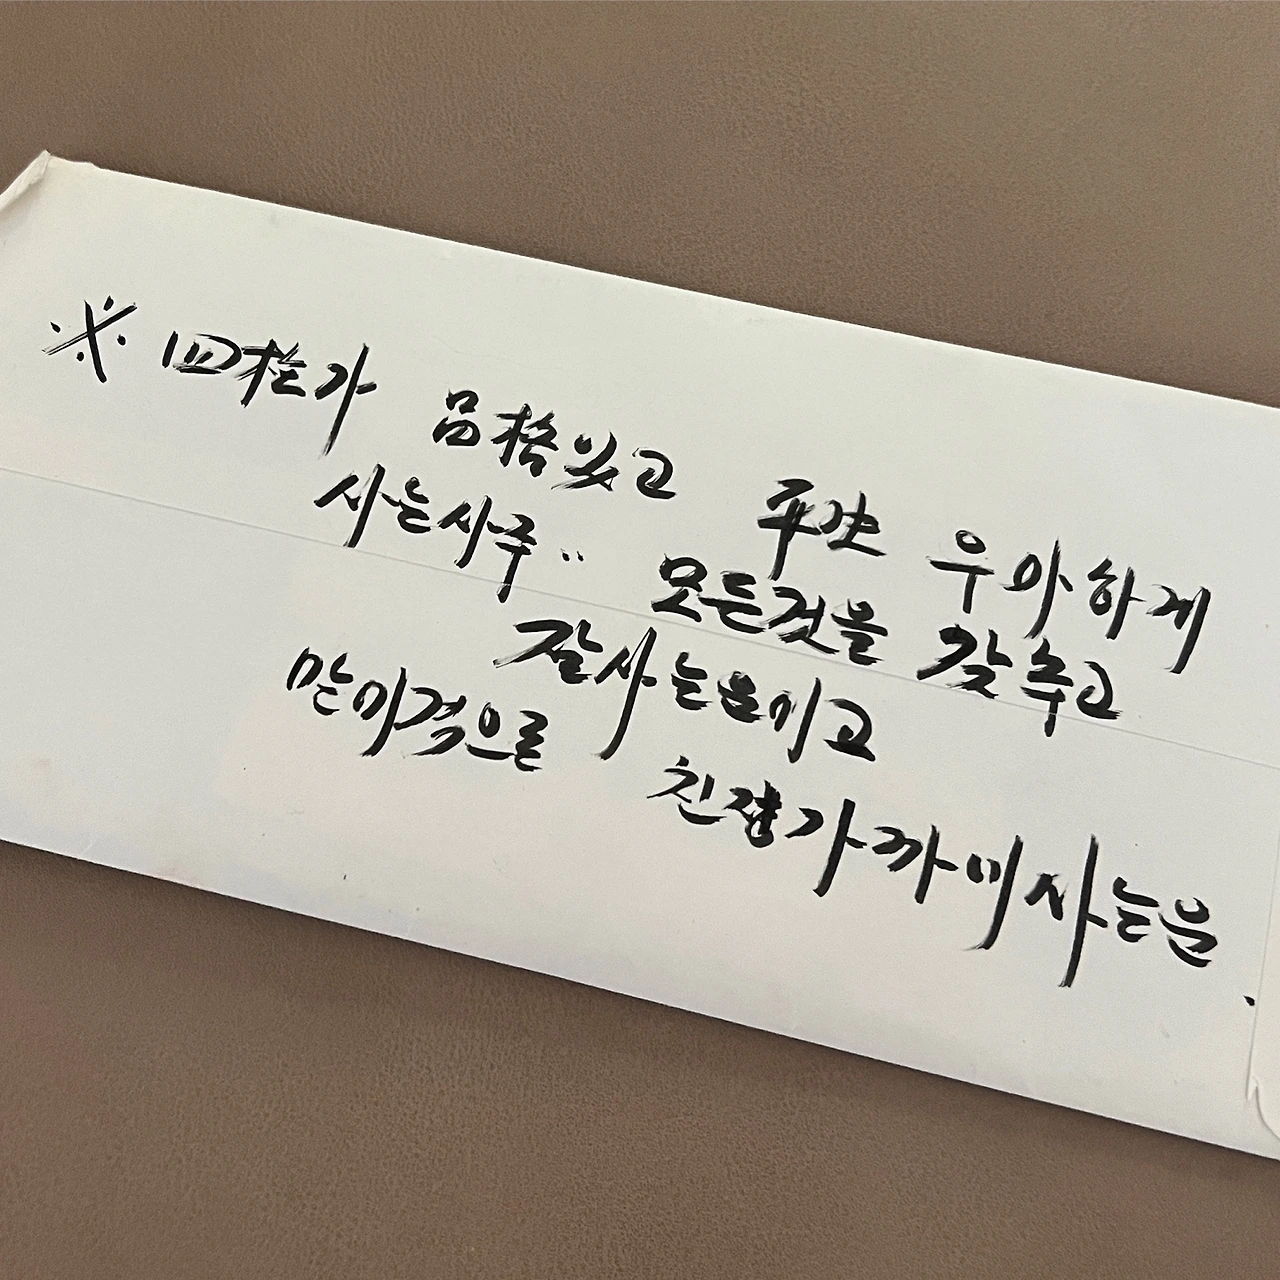 ※ 四柱가 品格있고 平生 우아하게
사는사주.. 모든것을 갖추고
잘사는운이고
맏며격으로 친정가까이사는운.